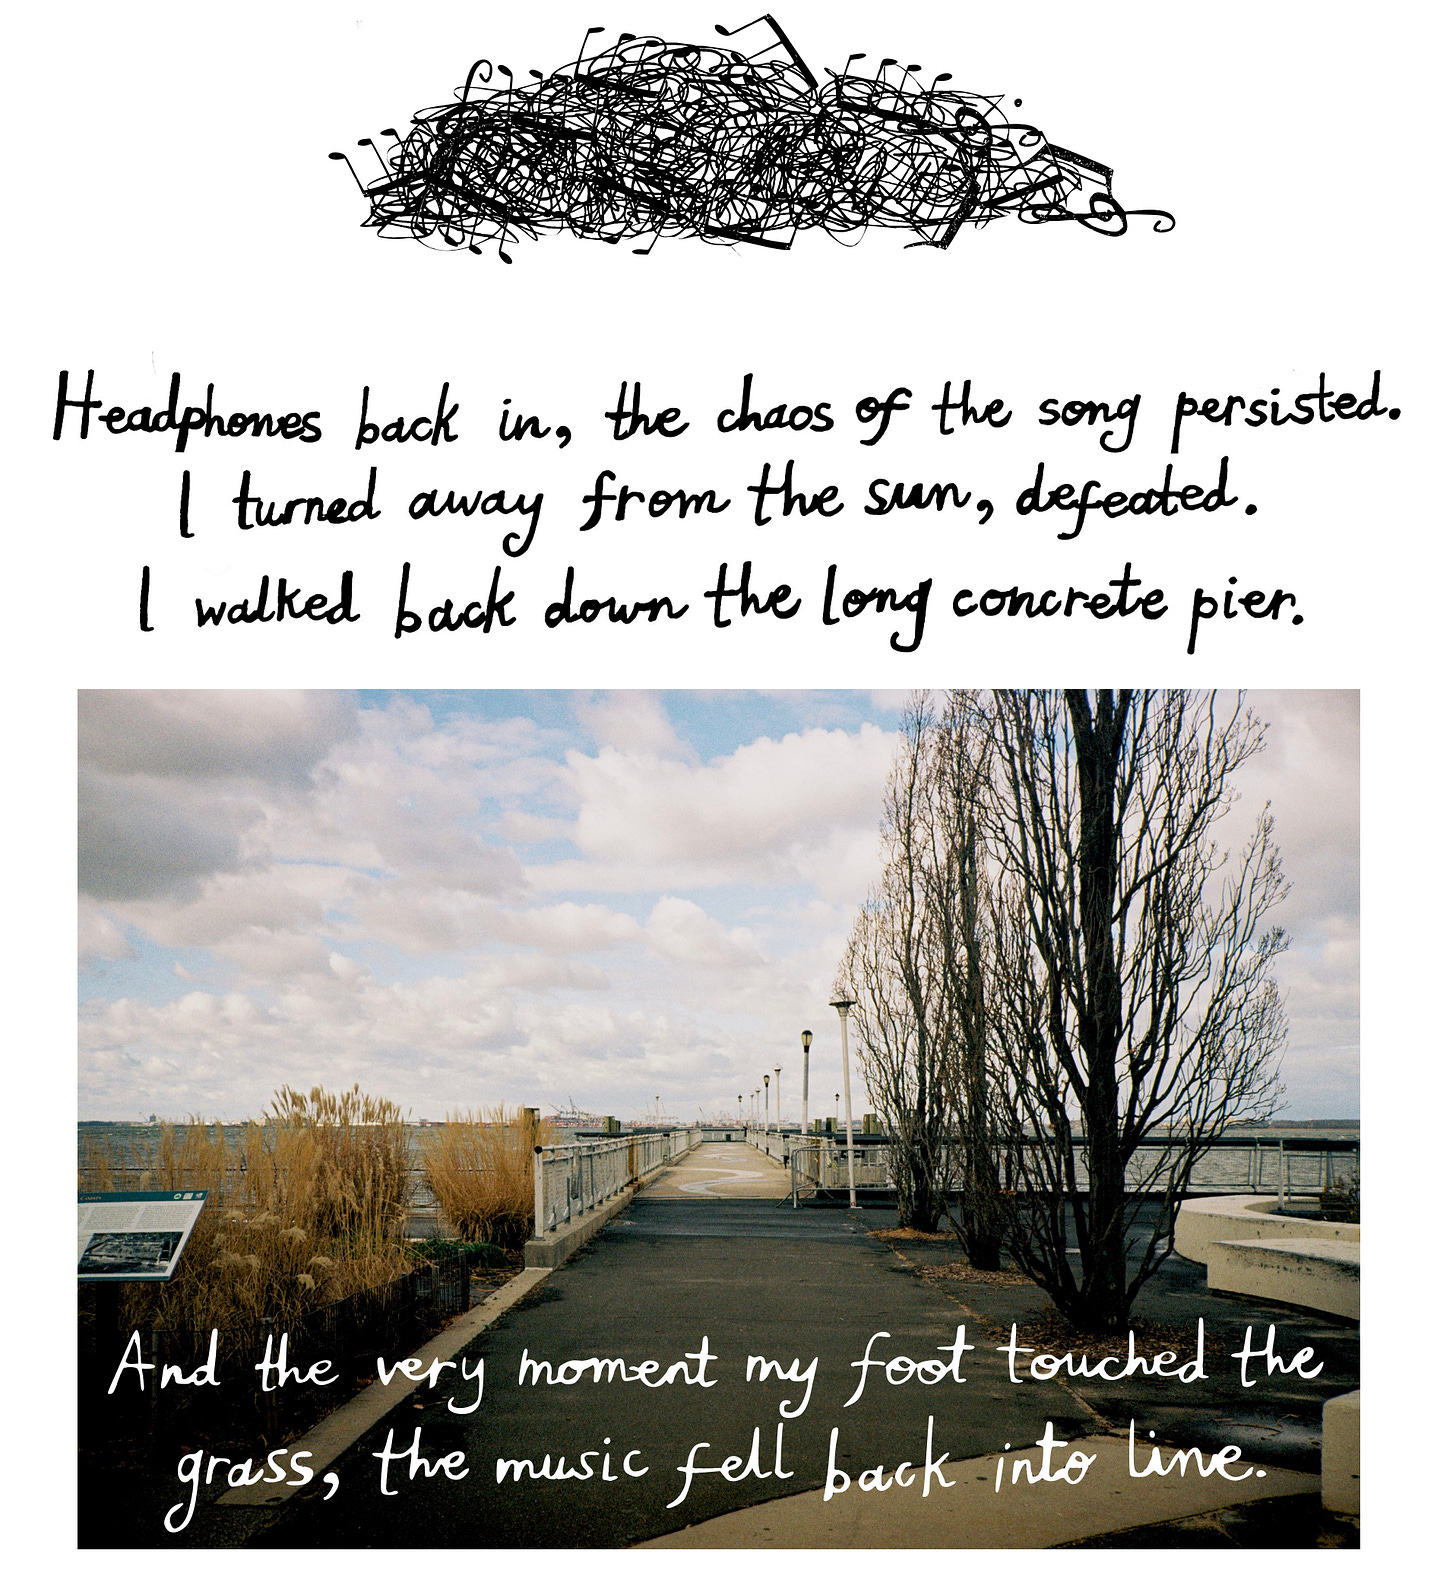 Headphones back in, the chaos of the song persisted.
I turned away from the sun, defeated.
I walked back down the long concrete pier.
And the very moment my foot touched the
grass, the music fell back into line.